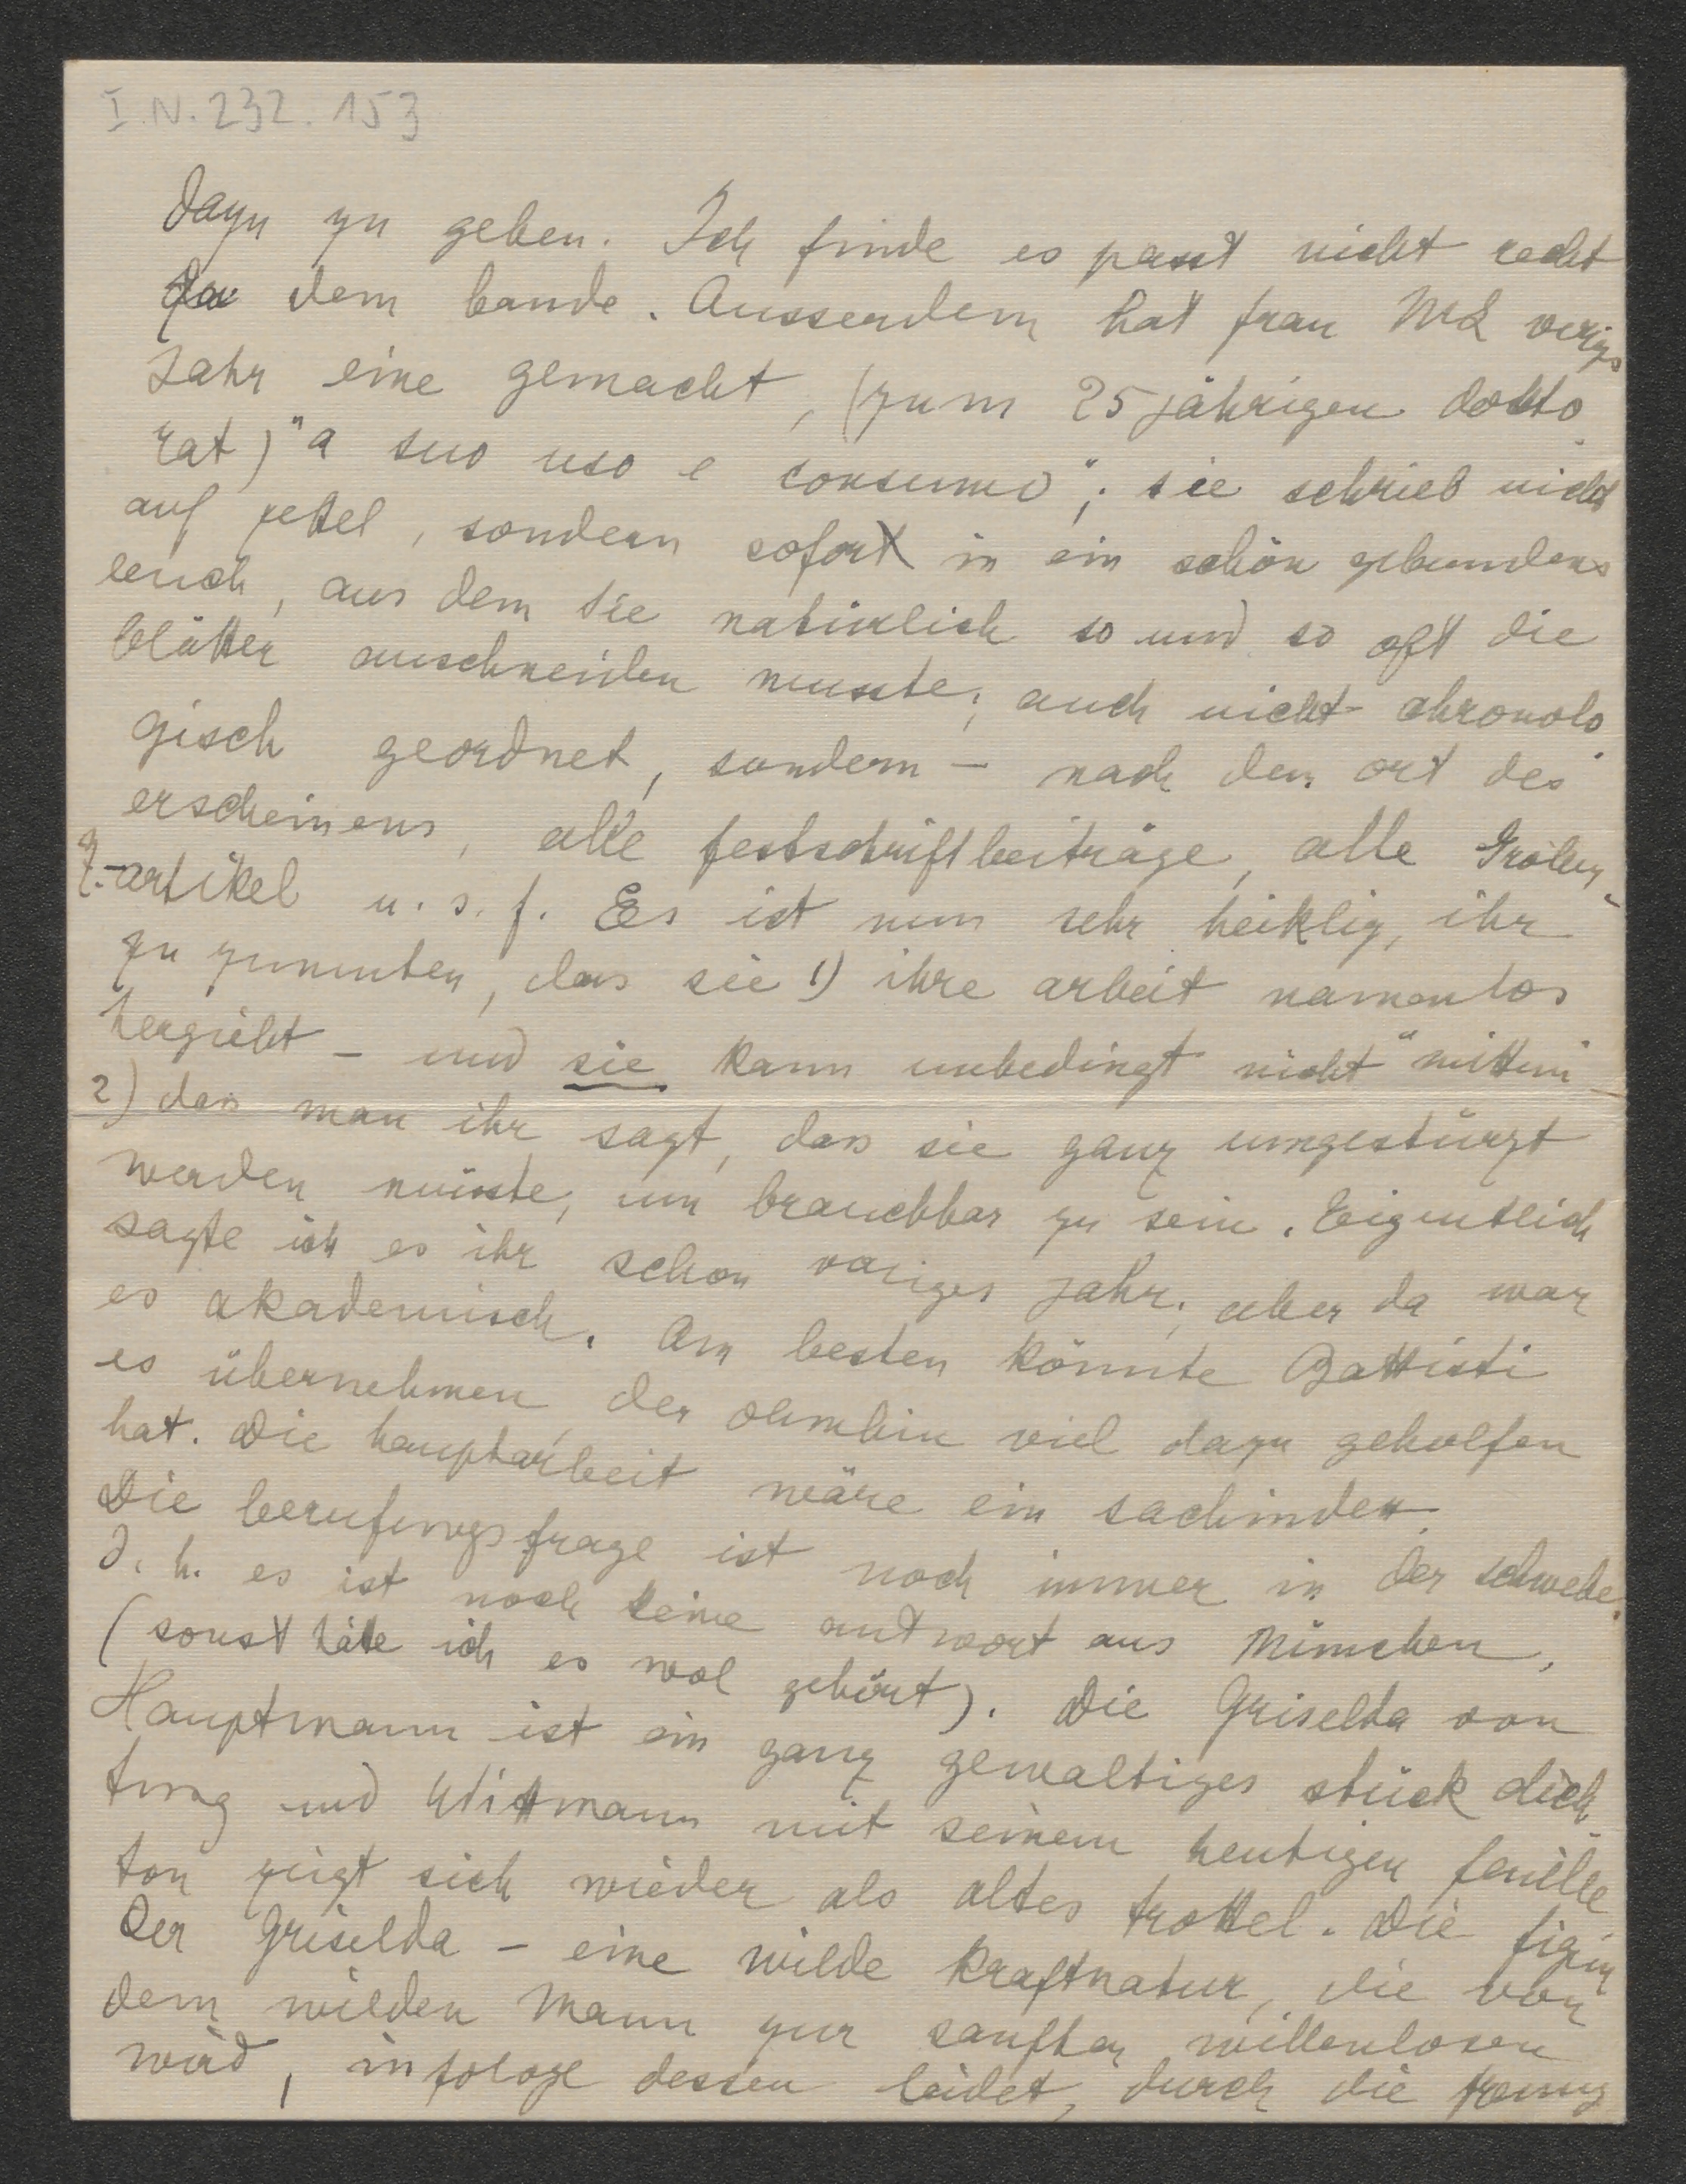 I.N. 232.153
dazu zu geben. Ich finde es passt nicht recht
zu dem bande. Ausserdem hat frau ML voriges
Jahr eine gemacht, (zum 25 jährigen dokto
rat) "a suo uso e consumo"; sie schrieb nicht
auf zettel, sondern sofort in ein schön gebundenes
buch, aus dem sie natürlich so und so oft die
blätter ausschneiden musste; auch nicht chronolo
gisch geordnet, sondern – nach dem ort des
erscheinens, alle festschriftbeiträge, alle Gröber-
Z.-artikel u. s. f. Es ist nun sehr heiklig, ihr
zu zumuten, dass sie 1) ihre arbeit namenlos
hergiebt – und sie kann unbedingt nicht "mittun"
2) dass man ihr sagt, dass sie ganz umgestürzt
werden müsste, um brauchbar zu sein. Eigentlich
sagte ich es ihr schon voriges jahr; aber da war
es akademisch. Am besten könnte Battisti
es übernehmen, der ohnehin viel dazu geholfen
hat. Die hauptarbeit wäre ein sachindex.
Die berufungsfrage ist noch immer in der schwebe,
d. h. es ist noch keine antwort aus München,
(sonst hätte ich es wol gehört). Die Griselda von
Hauptmann ist ein ganz gewaltiges stück dich-
tung und Wittmann mit seinem heutigen feuille
ton zeigt sich wieder als altes trottel. Die figur
der Griselda – eine wilde kraftnatur, die von
dem wilden Mann zur sanften willenlosen
wird, infologe dessen leidet, durch die